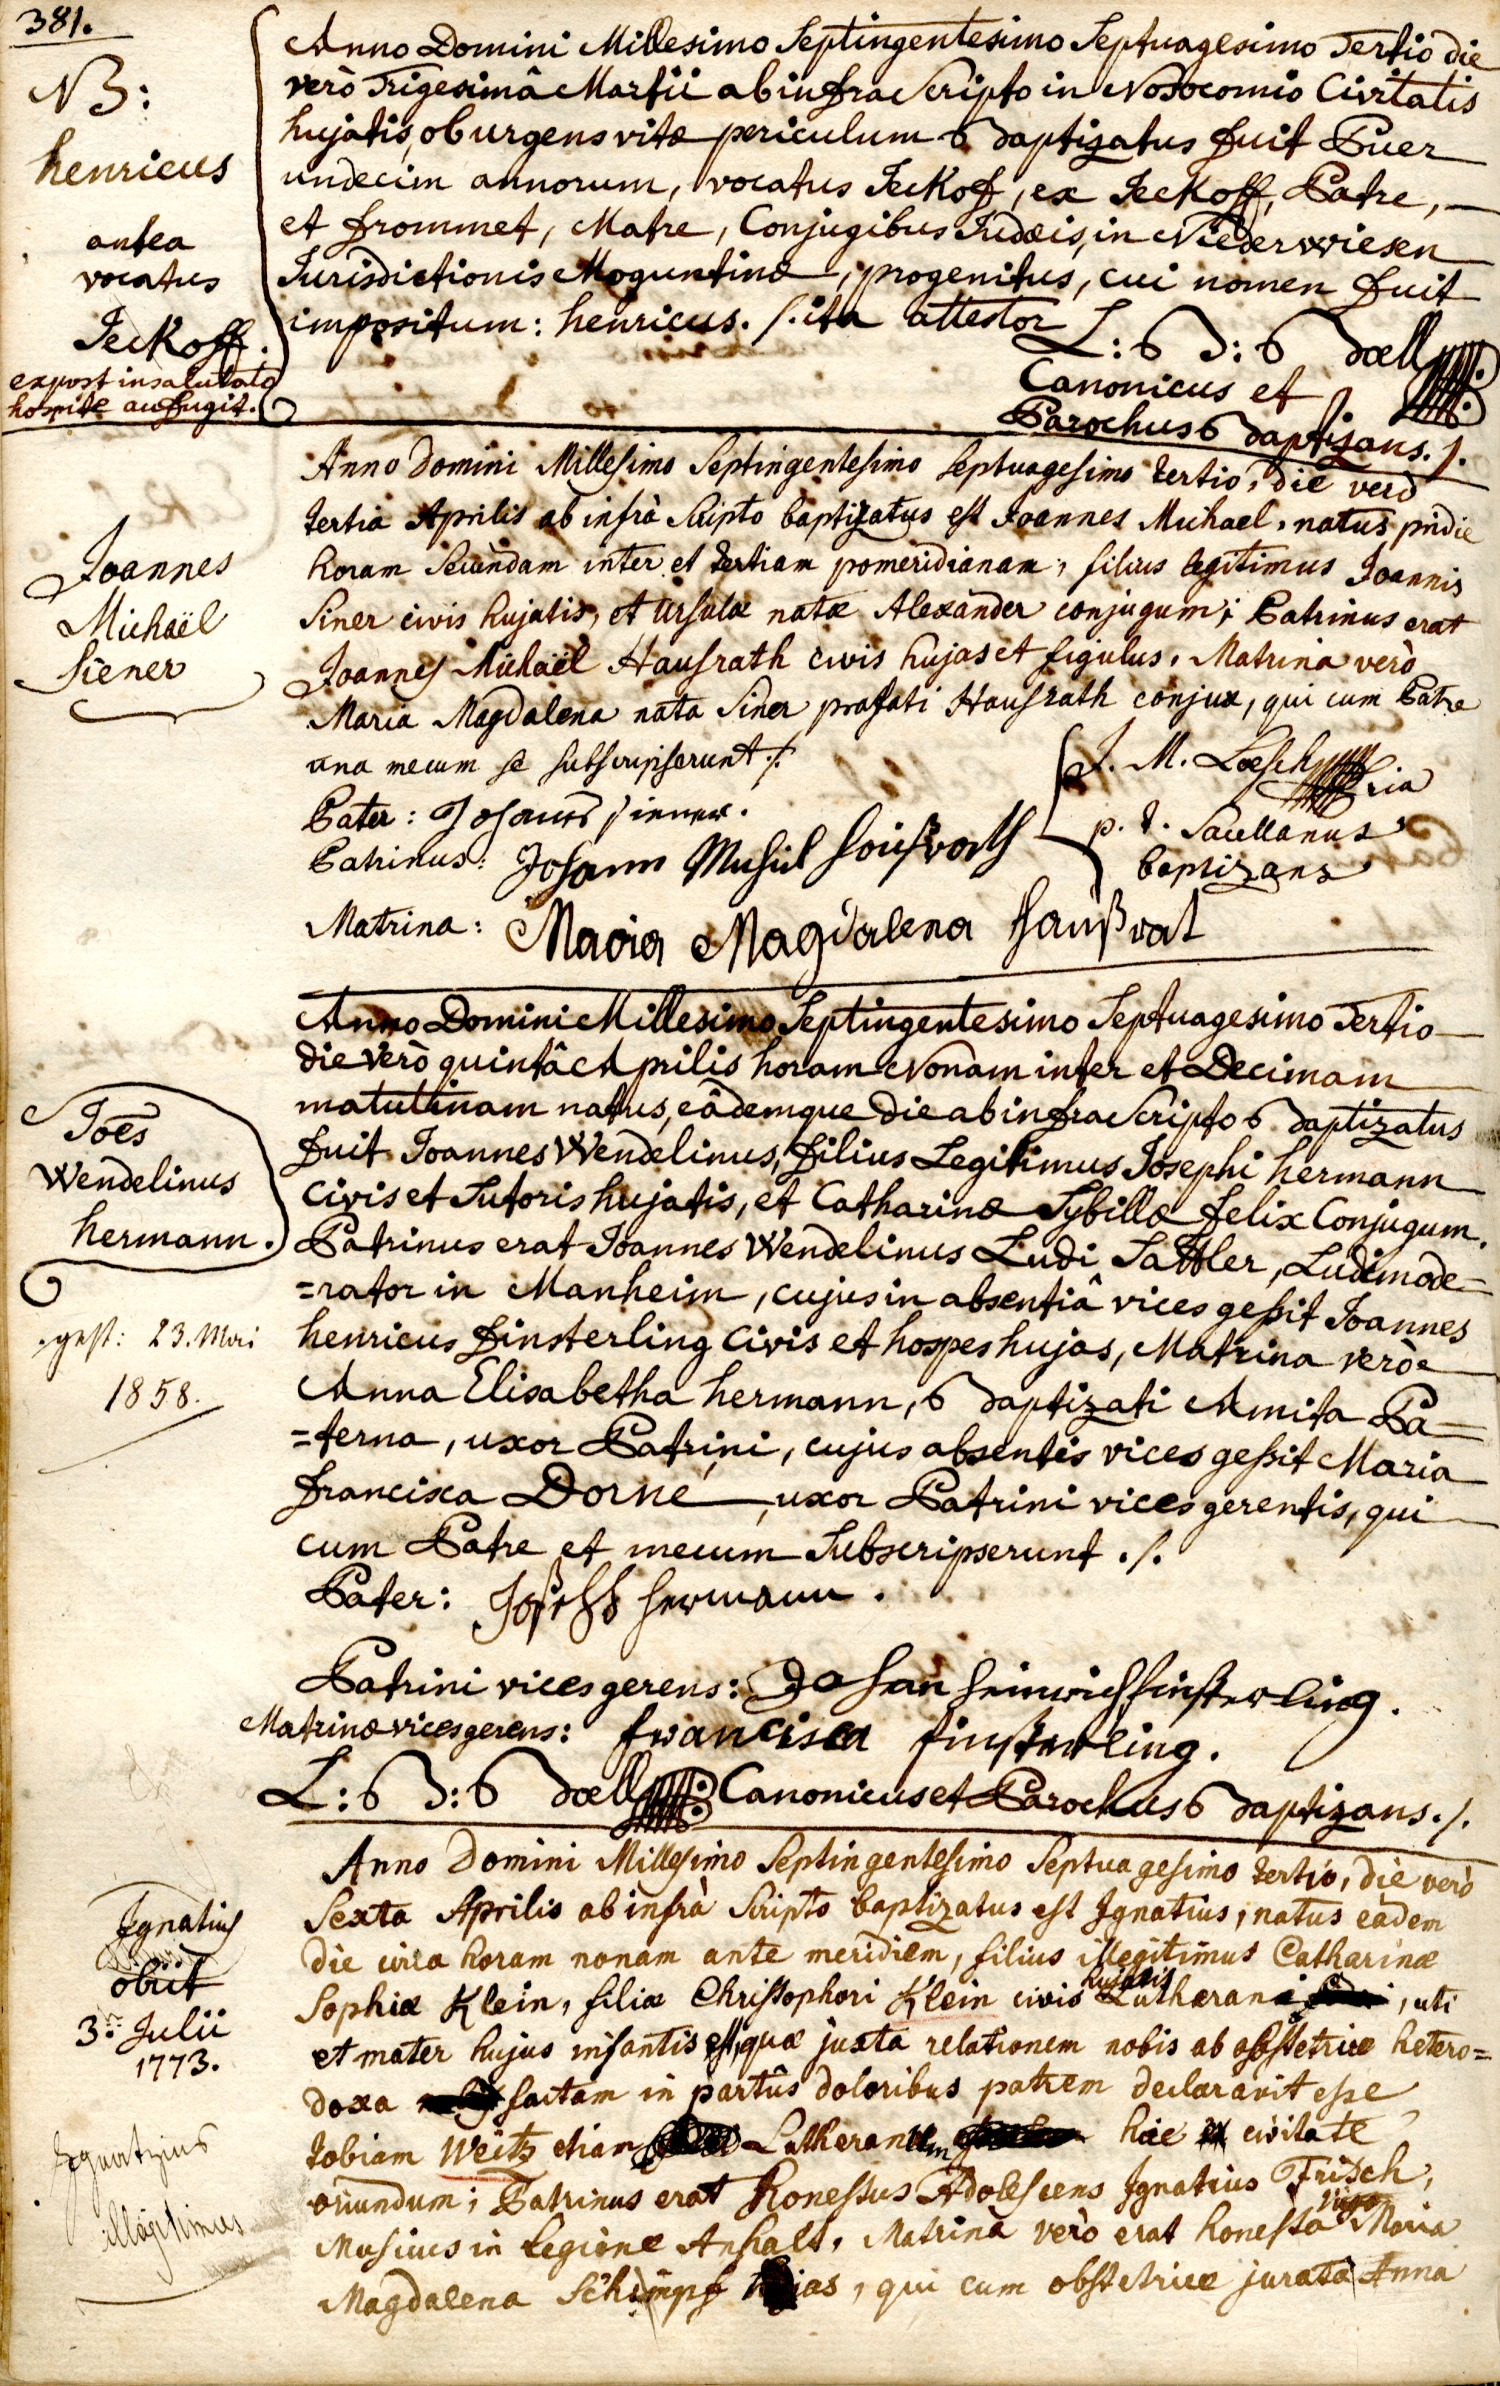 381.
NB:
henricus
antea
vocatus
Jeckoff.
expost insalutato
hospite aufugit.
Anno Domini Millesimo Septingentesimo Septuagesimo Tertio die
verò Trigesimâ Martii ab infra Scripto in Nosocomio Civitatis
hujatis, ob urgens vitæ periculum Baptizatus fuit Puer
undecim annorum, vocatus Jeckof, ex Jeckoff, Patre,
et frommet, Matre, Conjugibus Judæis, in Niederwiesen
Jurisdictionis Moguntinæ, progenitus, cui nomen fuit
impositum: henricus. /. ita attestor
L: B: Doell
Canonicus et
Parochus Baptizans. /.
Joannes
Michaël
Siener
Anno Domini Millesimo Septingentesimo Septuagesimo tertio, die verò
tertia Aprilis ab infrà Scripto baptizatus est Joannes Michael, natus pridie
horam Secundam inter et tertiam pomeridianam, filius legitimus Joannis
Siner civis hujatis, et Ursulæ natæ Alexander conjugum; Patrinus erat
Joannes Michaël Hausrath civis hujas et figulus, Matrina verò
Maria Magdalena nata Siner præfati Hausrath conjux, qui cum Patre
una mecum se subscripserunt ./.
Pater: Johannes Siener.
Patrinus: Johann Michel Haußrath
Matrina: Maria Magdalena Haußrat
J. M. Loesch
p. t. Sacellanus
baptizans
Joēs
Wendelinus
hermann.
gest: 23. Mai
1858.
Anno Domini Millesimo Septingentesimo Septuagesimo Tertio
die verò quintâ Aprilis horam Nonam inter et Decimam
matutinam natus, eâdemque die ab infra Scripto Baptizatus
fuit Joannes Wendelinus, filius Legitimus Josephi hermann
Civis et Sutoris hujatis, et Catharinæ Sybillæ felix Conjugum.
Patrinus erat Joannes Wendelinus Ludi Sattler, Ludimode=
=rator in Manheim, cujus in absentiâ vices geßit Joannes
henricus Finsterling Civis et hospes hujas, Matrina verò
Anna Elisabetha hermann, Baptizati Amita Pa=
=terna, uxor Patrini, cujus absentis vices geßit Maria
Francisca Dorne, uxor Patrini vices gerentis, qui
cum Patre et mecum Subscripserunt ./.
Pater: Joseph Hermann.
Patrini vices gerens: Johan Heinrich finsterling.
Matrinæ vices gerens: francisca finsterling.
L: B: Doell Canonicus et Parochus Baptizans. /.
Ignatius
obiit
3. Julii
1773.
Ignatzius
illegitimus
Anno Domini Millesimo Septingentesimo Septuagesimo tertio, die verò
Sexta Aprilis ab infrà Scripto baptizatus est Ignatius, natus eâdem
die circa horam nonam ante meridiem, filius illegitimus Catharinæ
Sophiæ Klein, filiæ Christophori Klein civis hujatis Lutherani, uti
et mater hujus infantis est, quæ juxta relationem nobis ab obstetrice hetero=
doxa factam in partûs doloribus patrem declaravit esse
Tobiam Weitz etiam Lutheranum hac civitate
oriundum; Patrinus erat honestus Adolescens Ignatius Frisch,
Musicus in Legione Anhalt, Matrina verò erat honesta virgo Maria
Magdalena Schimpf hujas, qui cum obstetrice jurata Anna